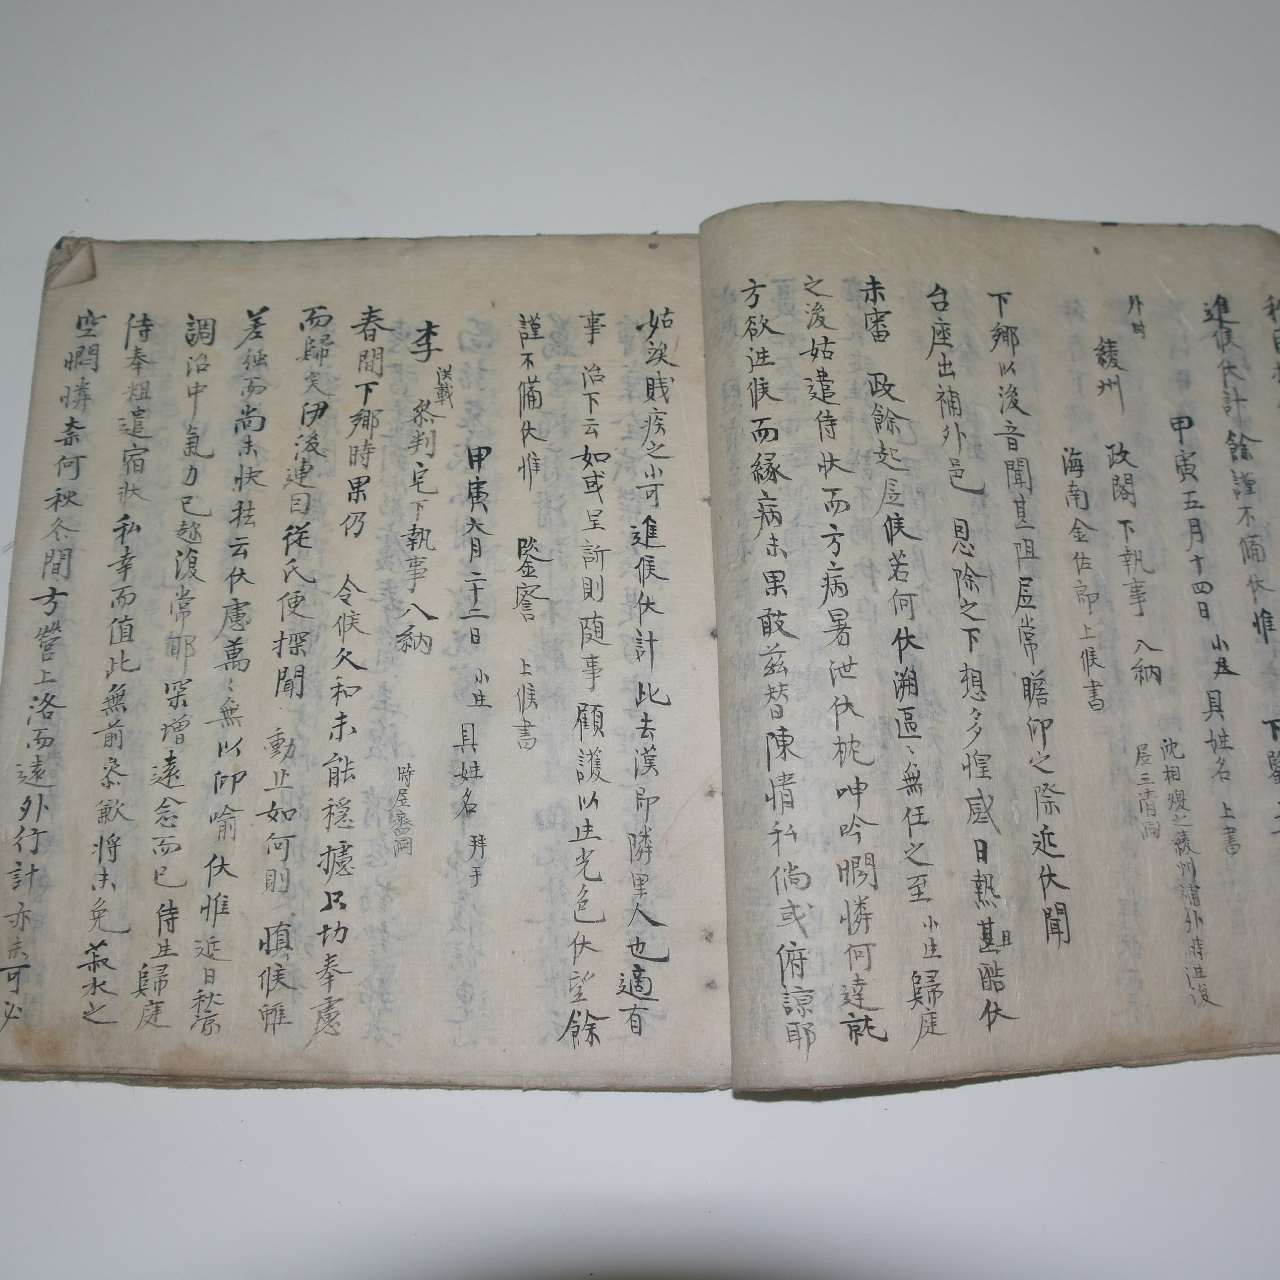 進候伏計餘謹不備伏惟 下鑒
甲寅五月十四日 小生具姓名 上書
沈相熳之綾州補外時進復
居三清洞
外封
綾州 政閣 下執事 入納
海南金佐郎上候書
下鄉以後音聞甚阻居常瞻仰之際近伏聞
台座出補外邑 恩除之下想多惶感日熱甚酷伏
未審 政餘起居候若何伏溯區〻無任之至 小生歸庭
之後姑遣侍狀而方病暑泄伏枕呻吟憫憐何達就
方欲進候而緣病未果敢茲替陳情私倘或俯諒耶
姑俟賤疾之小可 進候伏計此去漢即隣里人也適有
事 治下云如或呈訴則隨事 顧護以生光色伏望餘
謹不備伏惟 鑒詧 上候書
甲寅六月二十二日 小生 具姓名 拜手
李洪載參判宅下執事入納
時居齋洞
春間下鄉時果仍 令候欠和未能穩攄只切奉慮
而歸矣伊後連因從氏便探聞 動止如何則 愼候雖
差經而尚未快祛云伏慮萬〻無以仰喻伏惟近日秋凉
調治中氣力已趂復常耶罙增遠念而已 侍生歸庭
侍奉粗遣宿狀 私幸而值此無前冞歉將未免菽水之
空憫憐奈何秋冬間方營上洛而遠外行計亦未可必